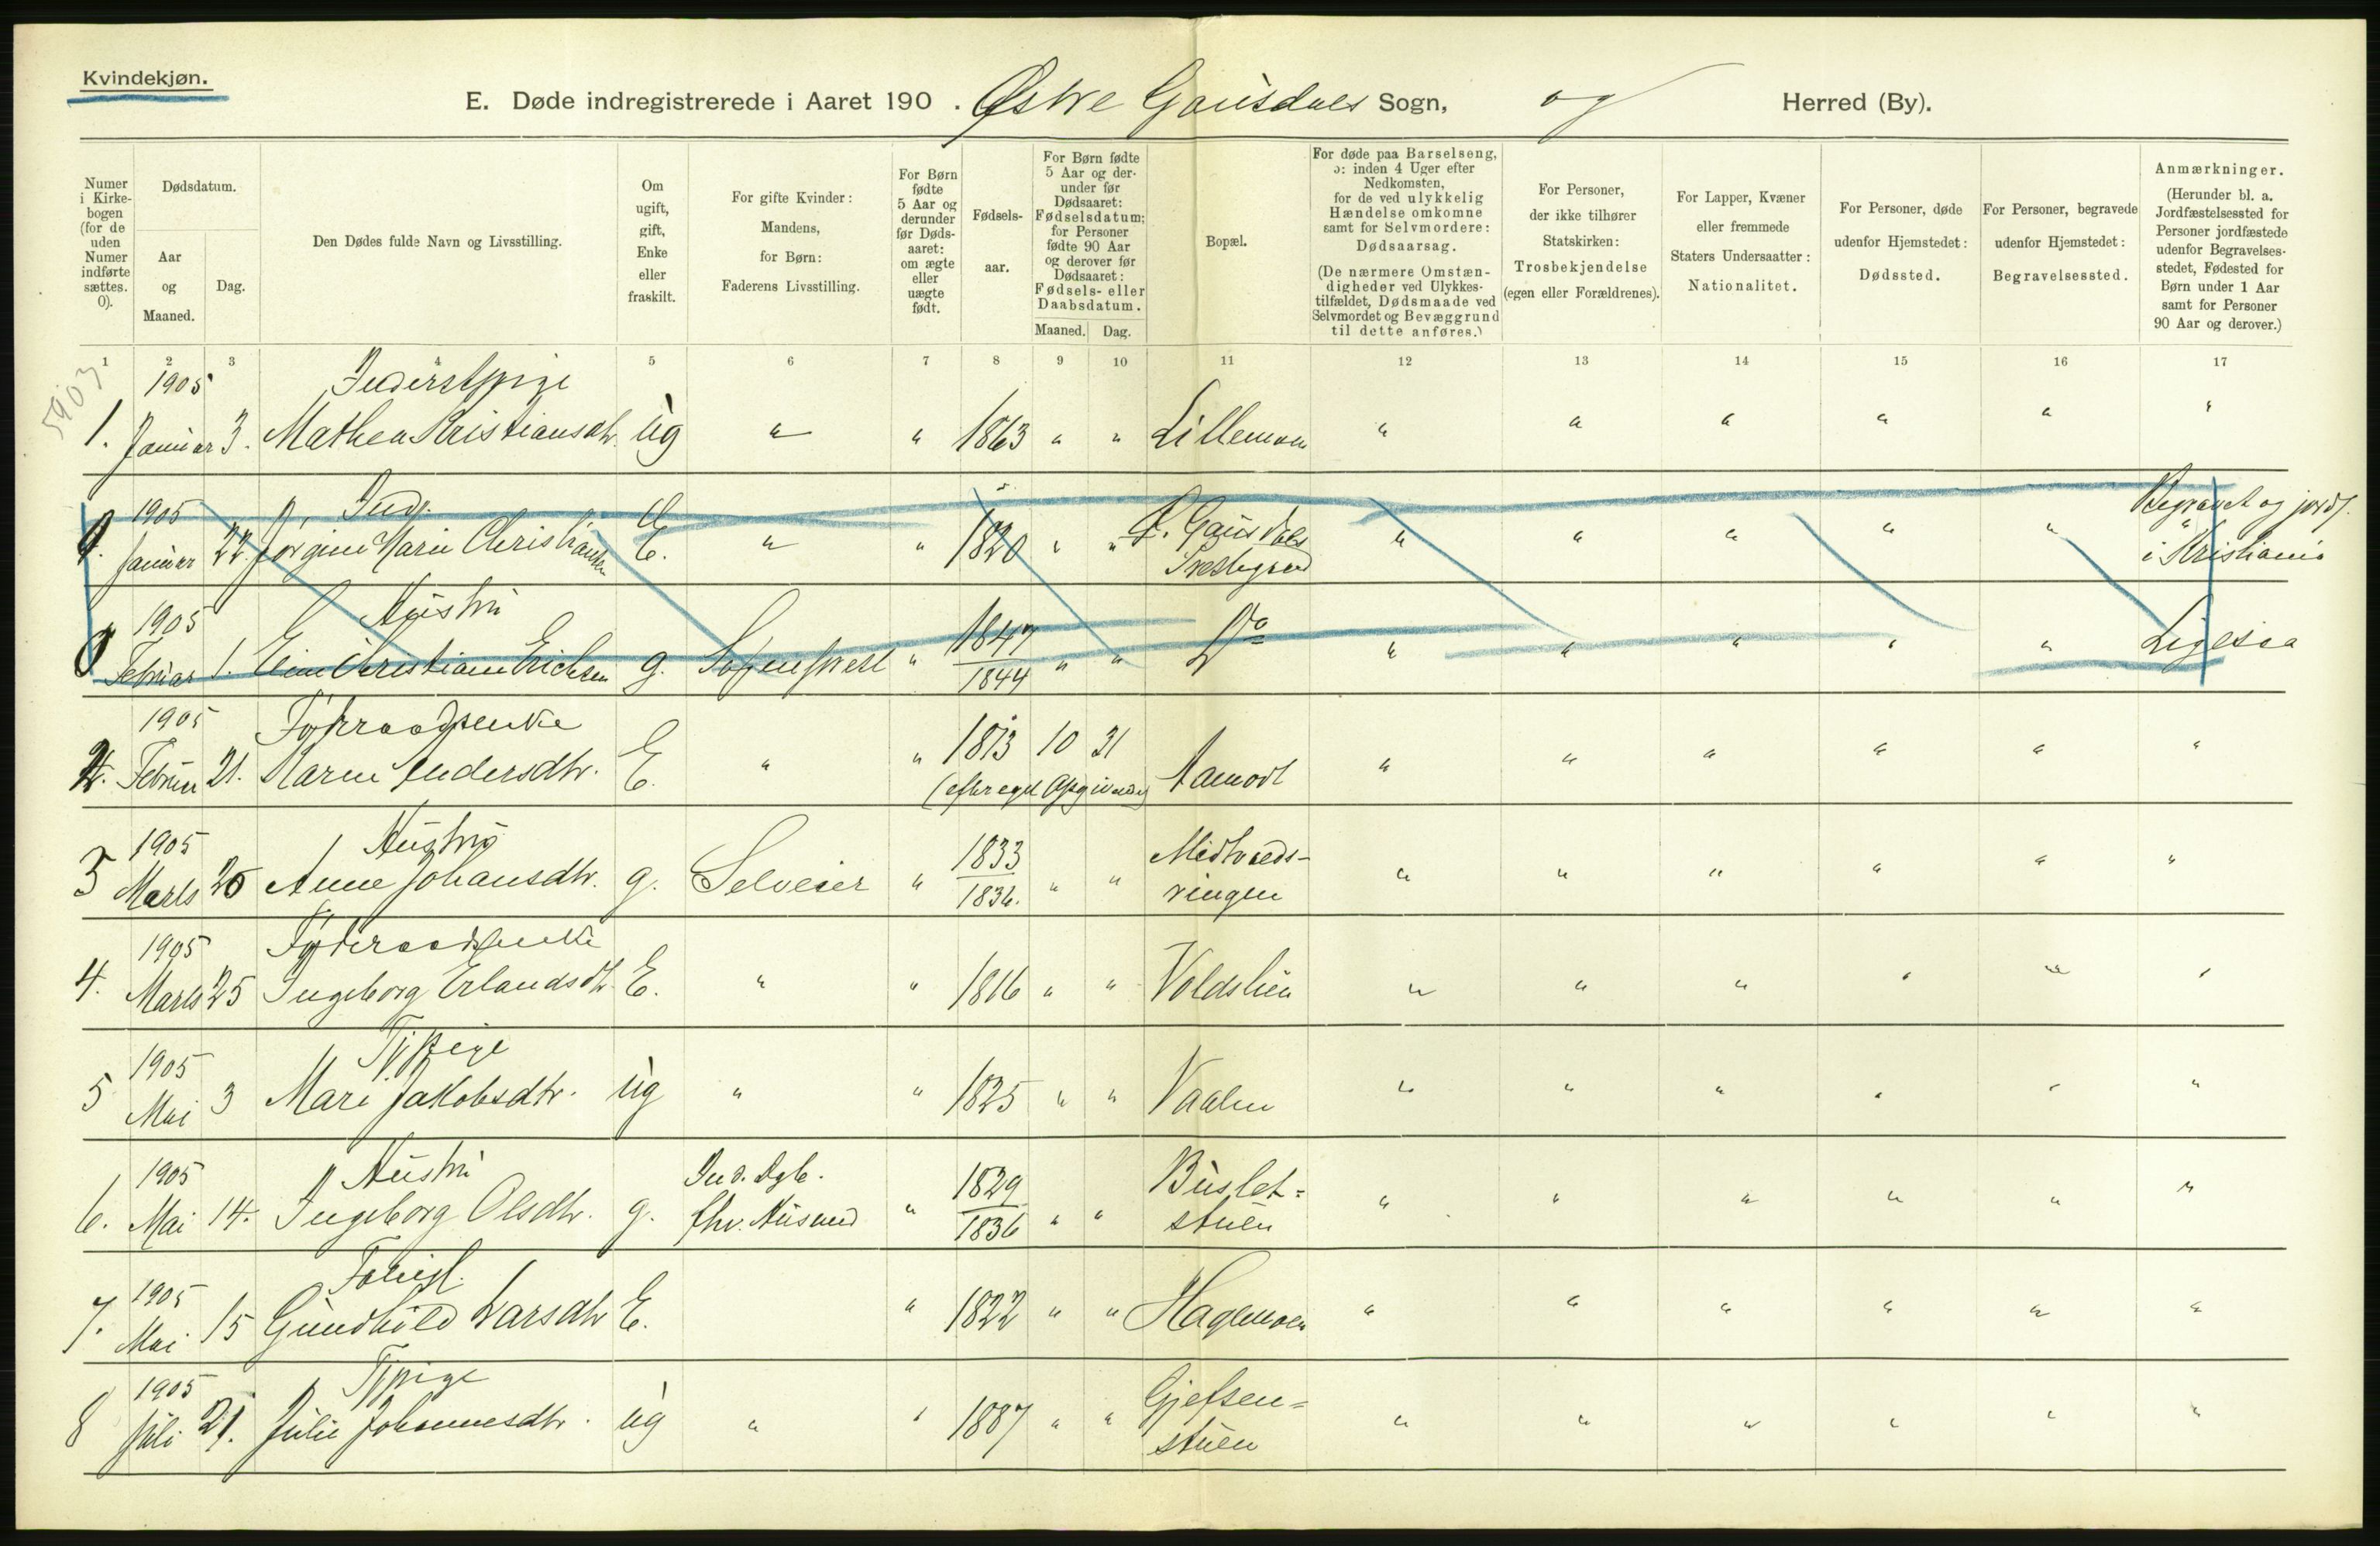 Kvindekjøn.
E. Døde indregistrerede i Aaret 190 . Østre Gausdals Sogn, og Herred (By).
Numer i Kirkebogen (for de uden Numer indførte sættes. 0).
Dødsdatum.
Aar og Maaned.
Dag.
Den Dødes fulde Navn og Livsstilling.
Om ugift, gift, Enke eller fraskilt.
For gifte Kvinder: Mandens, for Børn: Faderens Livsstilling.
For Børn fødte 5 Aar og derunder før Dødsaaret: om ægte eller uægte født.
Fødselsaar.
For Børn fødte 5 Aar og derunder før Dødsaaret: Fødselsdatum; for Personer fødte 90 Aar og derover før Dødsaaret: Fødsels- eller Daabsdatum.
Maaned. Dag.
Bopæl.
For døde paa Barselseng, ɔ: inden 4 Uger efter Nedkomsten, for de ved ulykkelig Hændelse omkomne samt for Selvmordere: Dødsaarsag.
(De nærmere Omstændigheder ved Ulykkestilfældet, Dødsmaade ved Selvmordet og Bevæggrund til dette anføres.)
For Personer, der ikke tilhører Statskirken: Trosbekjendelse (egen eller Forældrenes).
For Lapper, Kvæner eller fremmede Staters Undersaatter: Nationalitet.
For Personer, døde udenfor Hjemstedet: Dødssted.
For Personer, begravede udenfor Hjemstedet: Begravelsessted.
Anmærkninger.
(Herunder bl. a. Jordfæstelsessted for Personer jordfæstede udenfor Begravelsesstedet, Fødested for Børn under 1 Aar samt for Personer 90 Aar og derover.)
1 2 3 4 5 6 7 8 9 10 11 12 13 14 15 16 17
5903
1905 Inderstpige
1. Januar 3. Mathea Kristiansdtr. ug " " 1863 " " Lillemoen " " " " " "
1905 Ind. Begravet og jordf.
0. Januar 22. Jørgine Marie Christiansen E. " " 1820 " " Ø. Gausdals Prestegaard " " " " " i Kristiania
1905 Hustru
0 Februar 1. Christiane Erichsen g. Sogneprest " 1847 / 1844 " " Do " " " " " Ligesaa
1905 Føderaadsenke
2. Februar 21. Karen Andersdtr. E. " " 1813 10 31 Aamodt " " " " " "
(efter eget Opgivende)
1905 Hustru
3 Marts 20 Anne Johansdtr. g. Selveier " 1833 / 1836. " " Midtbredsvingen " " " " " "
1905 Føderaadsenke
4. Marts 25 Ingeborg Erlandsdtr. E. " " 1816 " " Voldslien " " " " " "
1905 Tjpige
5 Mai 3 Mari Jakobsdtr. ug " " 1825 " " Vaalen " " " " " "
1905 Hustru Ind. Dgb.
6. Mai 14. Ingeborg Olsdtr. g. fhv. Husmd " 1829 / 1836 " " Buslet=stuen " " " " " "
1905
7. Mai 15 Gundhild Larsdtr E. " 1822 " " Hagemoen " " " " " "
1905 Tjpige
8 Juli 21. Julie Johannesdtr. ug " " 1887 " " Gjefsen=stuen " " " " " "